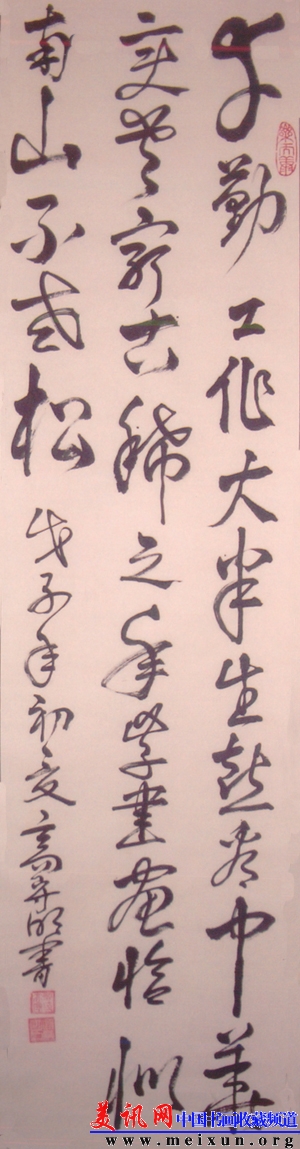 辛勤工作大半生喜看中華
变古稀之年学书画恰似
南山不老松
戊子年初夏高明書
美讯网 中国书画收藏频道
www.meixun.org